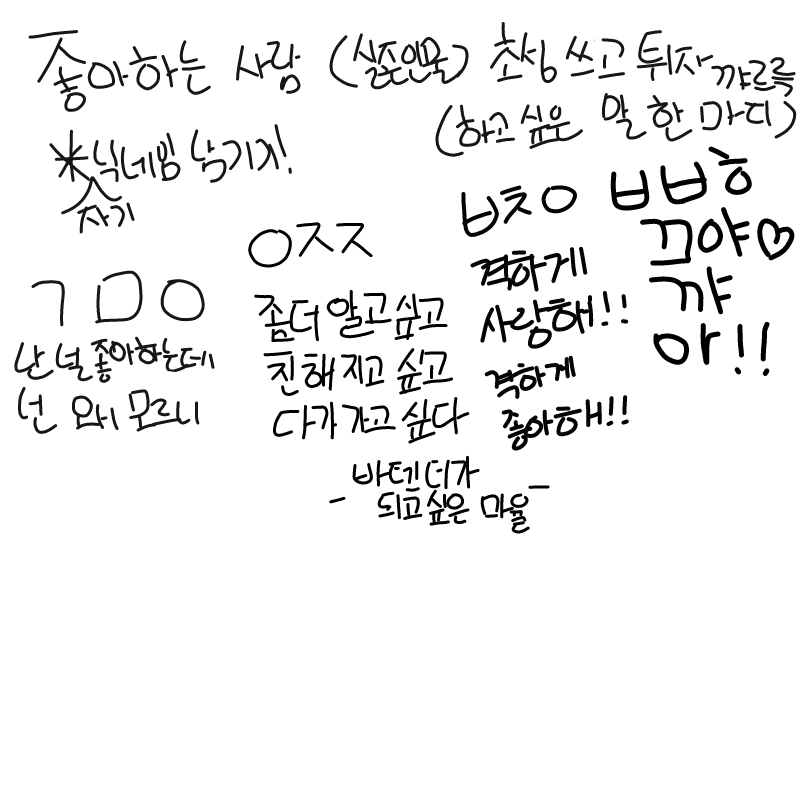 좋아하는 사람 (실존인물) 초성 쓰고 튀자 꺄르륵
(하고 싶은 말 한 마디)
*닉네임 남기기!
자기
ㄱㅁㅇ
난 널 좋아하는데
넌 왜 모르니
ㅇㅈㅈ
좀더 알고싶고
친해지고 싶고
다가가고 싶다
- 바텐더가
되고싶은 마율 -
ㅂㅊㅇ
격하게
사랑해!!
격하게
좋아해!!
ㅂㅂㅎ
끄야♡
꺄
아!!